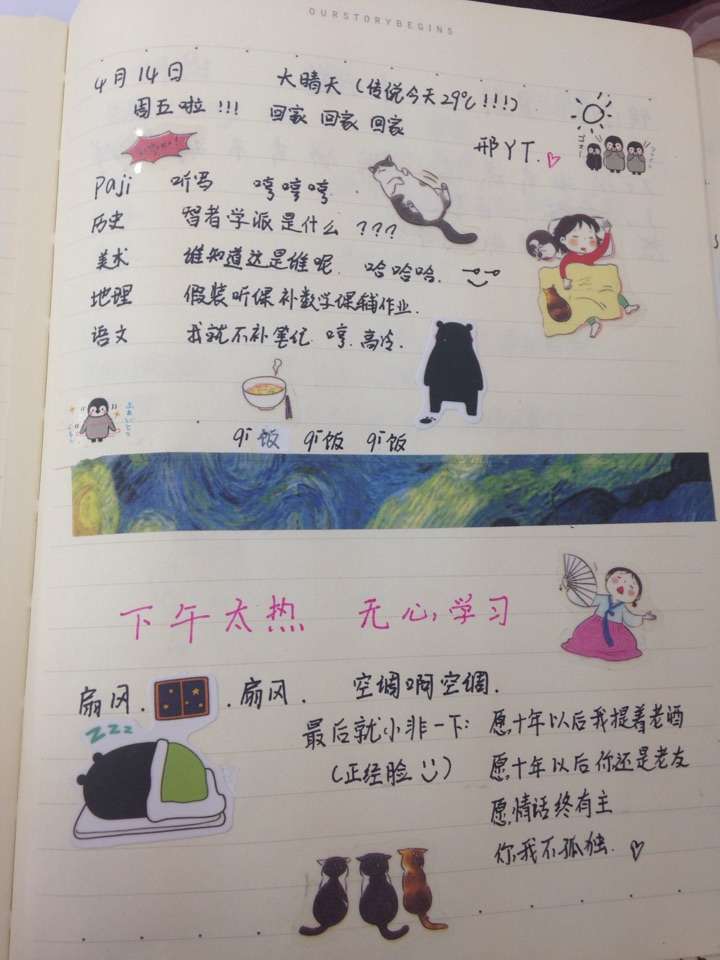 OURSTORYBEGINS
4月14日 大晴天（传说今天29℃!!!）
周五啦!!! 回家 回家 回家
邢YT.♡
Paji 听写 哼哼哼.
历史 智者学派是什么???
美术 谁知道这是谁呢. 哈哈哈.
地理 假装听课补数学课辅作业.
语文 我就不补笔记. 哼.高冷.
qi饭 qi饭 qi饭
下午太热 无心学习
扇风. .扇风. 空调啊空调.
zzz
最后就小非一下: 愿十年以后我提着老酒
(正经脸) 愿十年以后你还是老友
愿情话终有主
你我不孤独. ♡